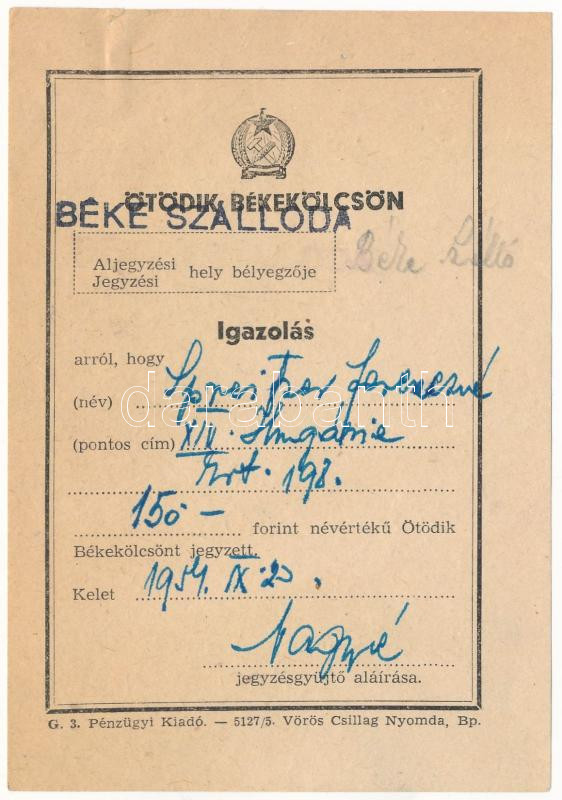 ÖTÖDIK BÉKEKÖLCSÖN
BÉKE SZÁLLODA
Béke
Aljegyzési
Jegyzési hely bélyegzője
Igazolás
arról, hogy
(név) Ferencné
(pontos cím) XIV. Hungária
krt. 198.
150 – forint névértékű Ötödik
Békekölcsönt jegyzett.
Kelet 1954. IX. 23.
Nagyné
jegyzésgyüjtő aláírása.
G. 3. Pénzügyi Kiadó. — 5127/5. Vörös Csillag Nyomda, Bp.
darabanth